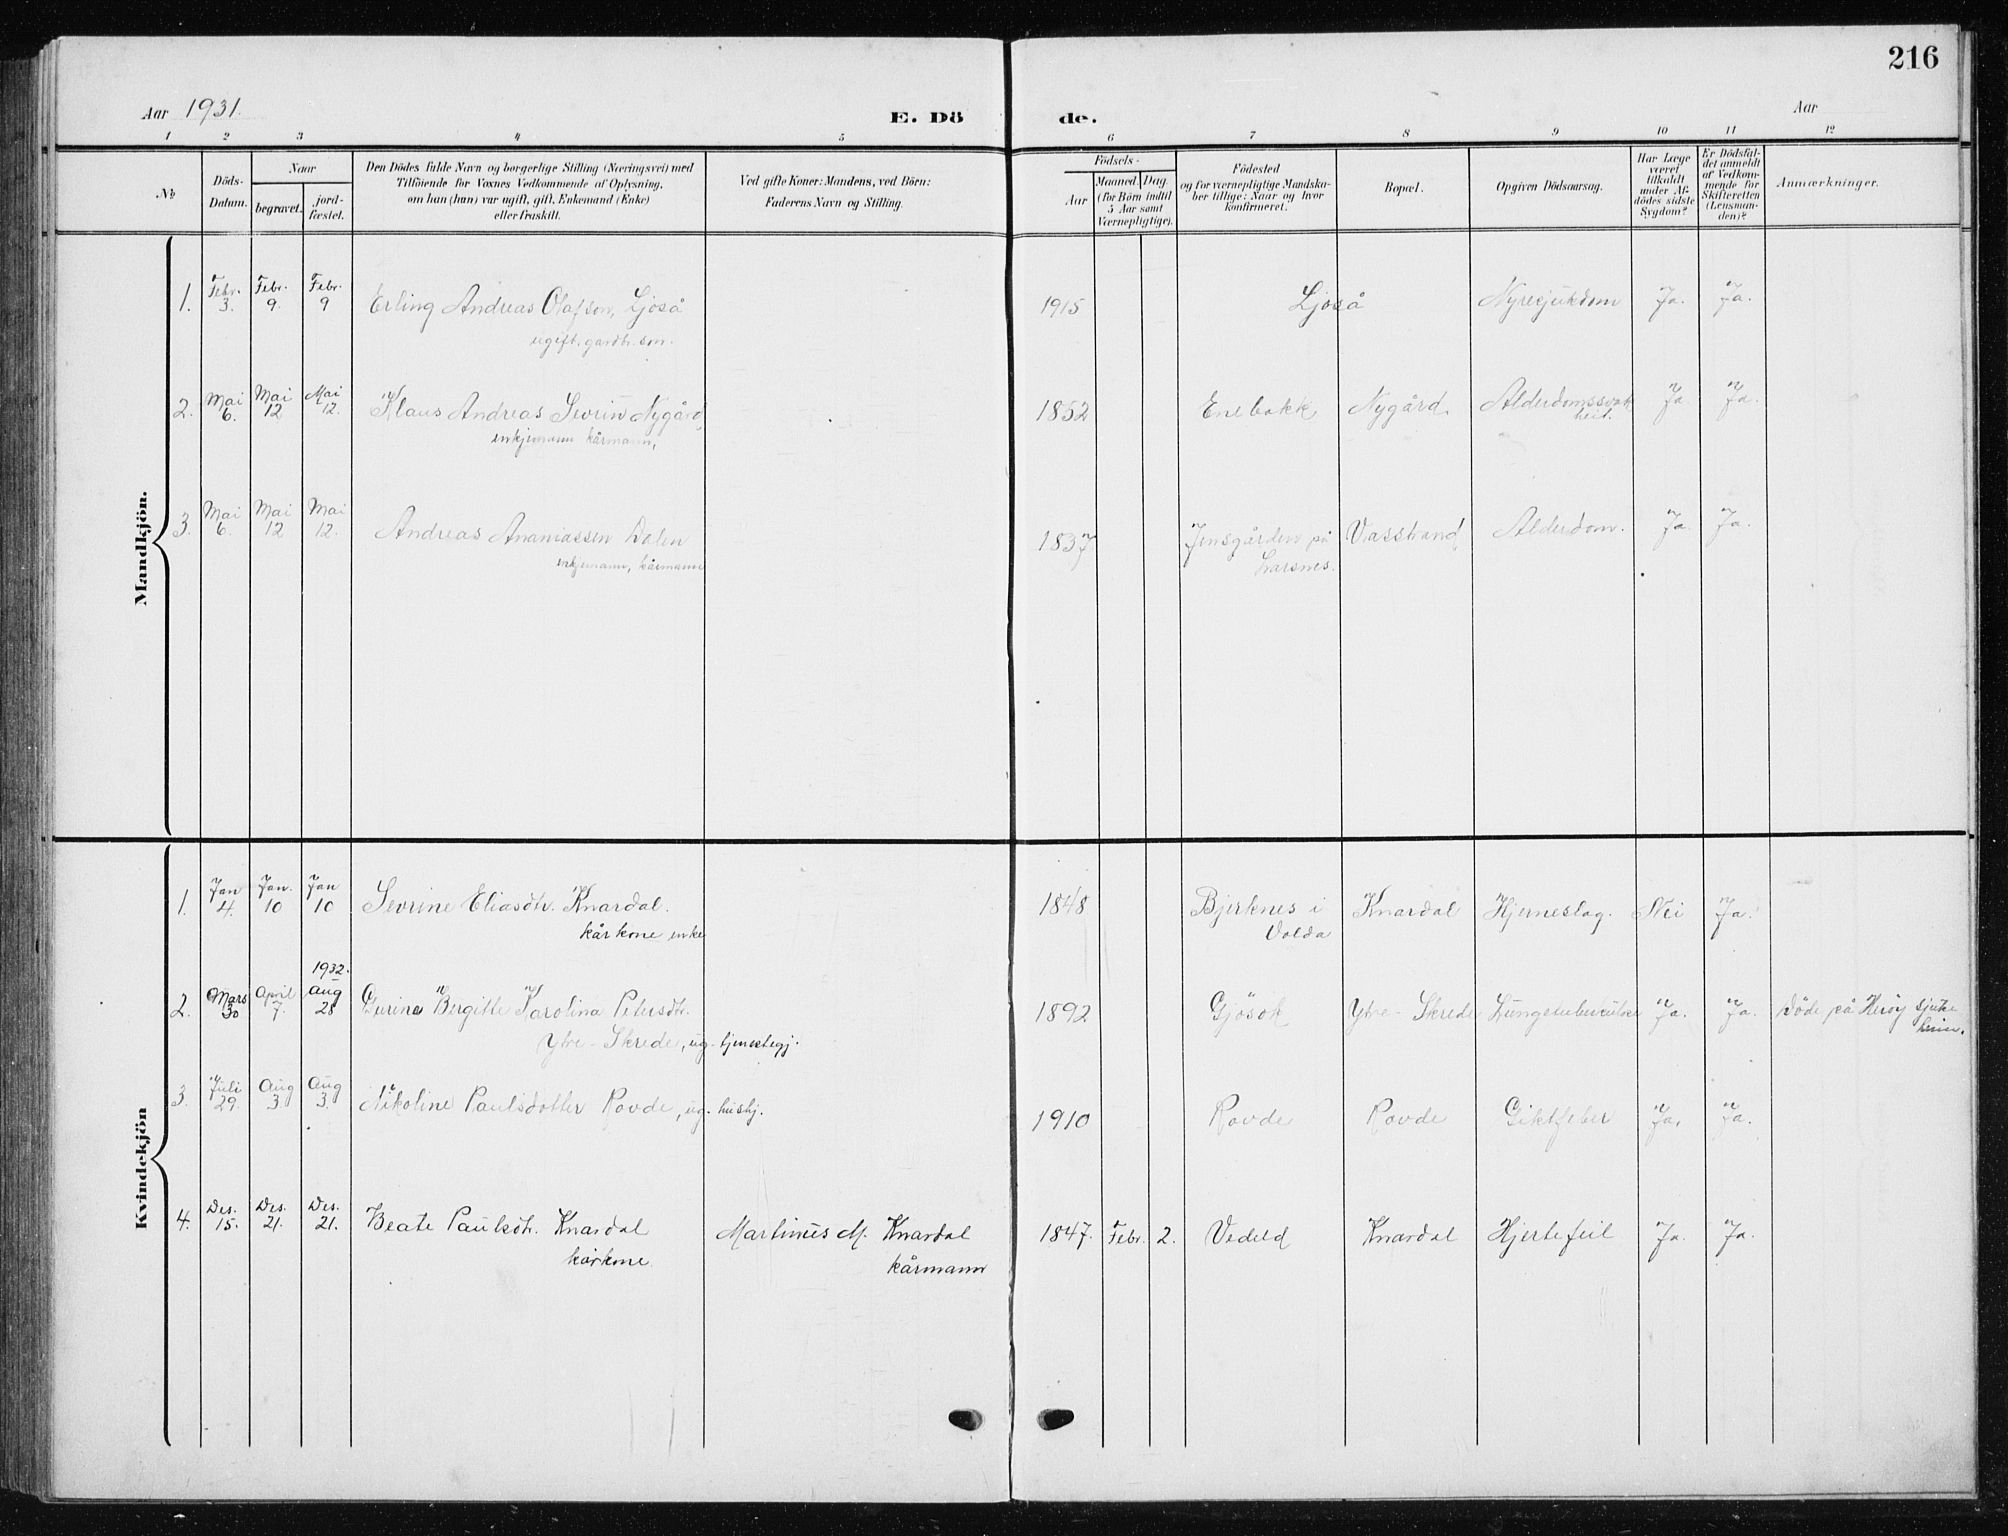 216
Aar 1931.
E. Dö de.
Aar
1 2 3 4 5 6 7 8 9 10 11 12
No
Döds-
Datum.
Naar
begravet.
jord-
fæstet.
Den Dödes fulde Navn og borgerlige Stilling (Næringsvei) med
Tilföiende for Voxnes Vedkommende af Oplysning,
om hun (han) var ugift, gift, Enkemand (Enke)
eller fraskilt.
Ved gifte Koner: Mandens, ved Börn:
Faderens Navn og Stilling.
Födsels-
Aar
Maaned. Dag.
(for Börn indtil
5 Aar samt
Værnepligtige).
Födested
og for værnepligtige Mandska-
ber tillige: Naar og hvor
konfirmeret.
Bopæl.
Opgiven Dödsaarsag.
Har Læge
været
tilkaldt
under Af-
dödes sidste
Sygdom?
Er Dödsfal-
det anmeldt
af Vedkom-
mende for
Skifteretten
(Lensman-
den)?
Anmærkninger.
Mandkjön.
1. Febr. 3. Febr. 9. Febr. 9 Erling Andreas Olafson, Ljøså 1915 Ljøså Nyresjukdom Ja. Ja.
ugift. gardbr. son.
2. Mai 6. Mai 12 Mai 12. Klaus Andreas Sevrin Nygård, 1852 Enebakk Nygård. Alderdomssvak
heit. Ja Ja.
enkjemann kårmann,
3. Mai 6. Mai 12 Mai 12. Andreas Ananiassen Dalen 1837 Jensgården på Vasstrand Alderdom. Ja. Ja.
enkjemann, kårmann Larsnes.
Kvindekjön
1. Jan 4. Jan. 10 Jan 10 Sevrine Eliasdtr. Knardal. 1848 Bjerknes i Knardal Hjerneslag. Nei Ja.
kårkone enke Volda
1932.
2. Mars 30 April 7. Aug 28 Gurina Bergitte Karolina Petersdtr. 1892 Gjøsok Ytre-Skrede Lungetuberkulose Ja. Ja. Døde på Herøy sjuke
heim.
Ytre-Skrede, ug. tjenestegj.
3. Juli 29. Aug 3. Aug 3. Nikoline Paulsdotter Rovde, ug. hushj. 1910 Rovde Rovde Giktfeber Ja. Ja.
4. Des. 15. Des. 21. Des. 21. Beate Paulsdtr. Knardal Martinus M. Knardal 1847. Febr. 2. Vedeld Knardal Hjertefeil Ja. Ja.
kårkone. kårmann